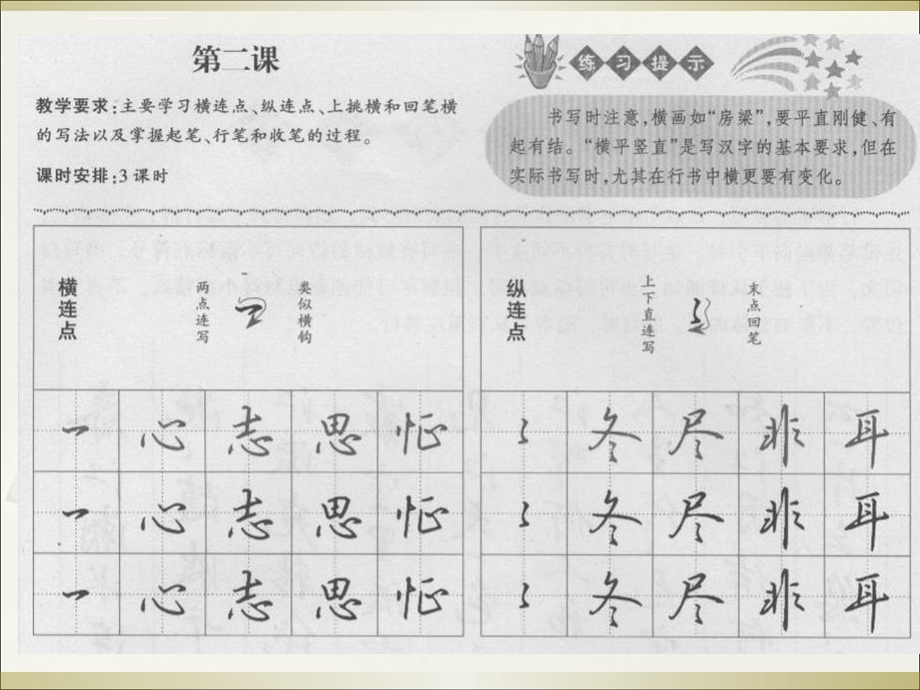 第二课
教学要求:主要学习横连点、纵连点、上挑横和回笔横
的写法以及掌握起笔、行笔和收笔的过程。
课时安排:3课时
练习提示
书写时注意,横画如“房梁”,要平直刚健、有
起有结。“横平竖直”是写汉字的基本要求,但在
实际书写时,尤其在行书中横更要有变化。
横连点
两点连写
奥似横钩
心 志 思
心 志 思
心 志 思
纵连点
上下直连写
下点回笔
冬 尽 非 耳
冬 尽 非 耳
冬 尽 非 耳